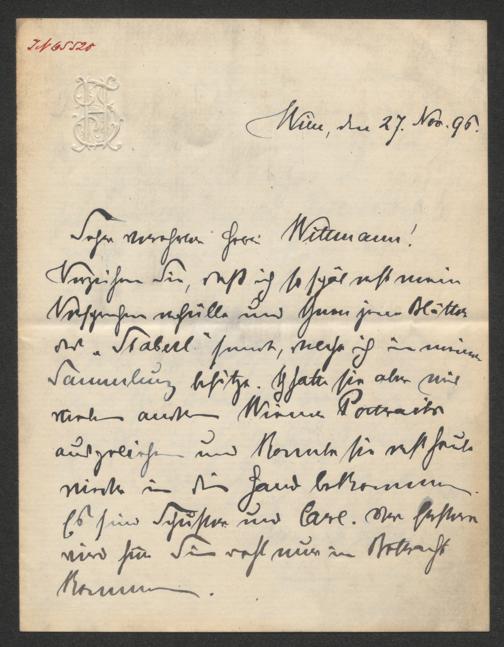 IN 65520
Wien, den 27. Nov. 96.
Sehr verehrter Herr Wittmann!
Verzeihen Sie, daß ich so spät erst mein
Versprechen erfülle und Ihnen jene Blätter
des „Staberl" sende, welche ich in meiner
Sammlung besitze. Ich hatte sie aber mit
vielen andern Wiener Portraits
ausgeliehen und konnte sie erst heute
wieder in die Hand bekommen.
Es sind Schuster und Carl. Der erstere
wird für Sie wohl nur in Betracht
kommen.